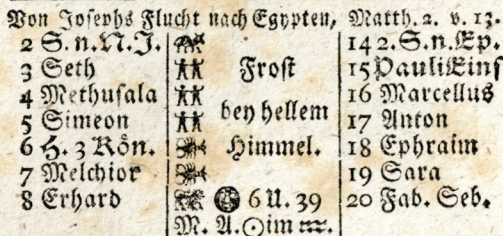 Von Josephs Flucht nach Egypten, Matth. 2. v. 13.
2 S. n. N. J. 14 2. S. n. Ep.
3 Seth Frost 15 Pauli Eins
4 Methusala 16 Marcellus
5 Simeon bey hellem 17 Anton
6 H. 3 Kön. Himmel. 18 Ephraim
7 Melchior 19 Sara
8 Erhard 6 U. 39 20 Fab. Seb.
M. A. ☉ im ♒.